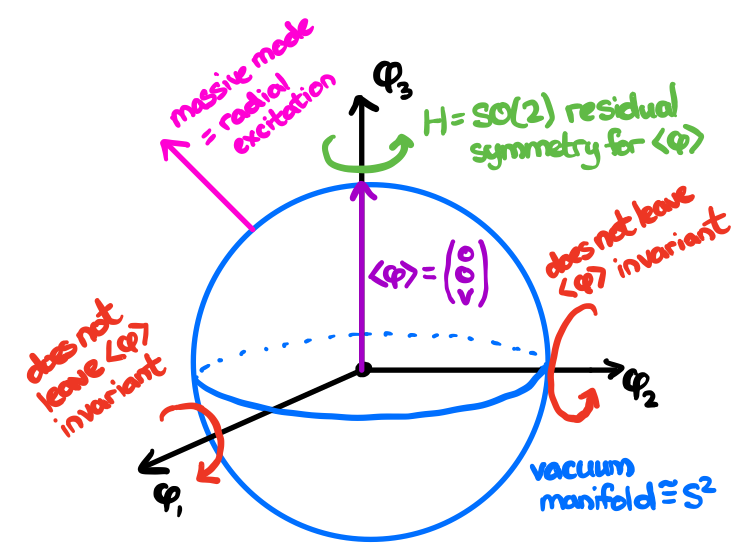 massive mode
= radial
excitation
φ₃
H = SO(2) residual
symmetry for <φ>
does not leave
<φ> invariant
<φ> = (0
0
v)
does not
leave <φ>
invariant
φ₂
φ₁
vacuum
manifold ≅ S²